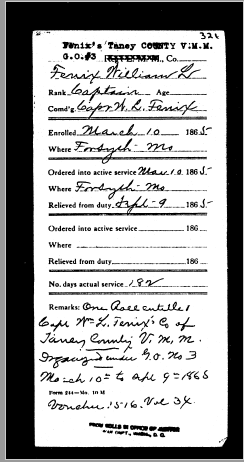 321
Fenix's Taney COUNTY V.M.M.
G.O.#3 M., Co.
Fenix William L
Rank Captain Age
Comd'g. Capt W. L. Fenix
Enrolled March 10 1865
Where Forsyth Mo
Ordered into active service Mar 10 1865
Where Forsyth Mo
Relieved from duty Sept 9 1865
Ordered into active service 186
Where
Relieved from duty 186
No. days actual service 182
Remarks: One Roll entitled
Capt Wm L. Fenix's Co of
Taney County V. M. M.
Organized under G.O. No 3
March 10 to Sept 9 1865
Form 244—No. 10 M
Voucher 1516. Vol 34.
FROM ROLLS IN OFFICE OF AUDITOR
WAR DEPT.,